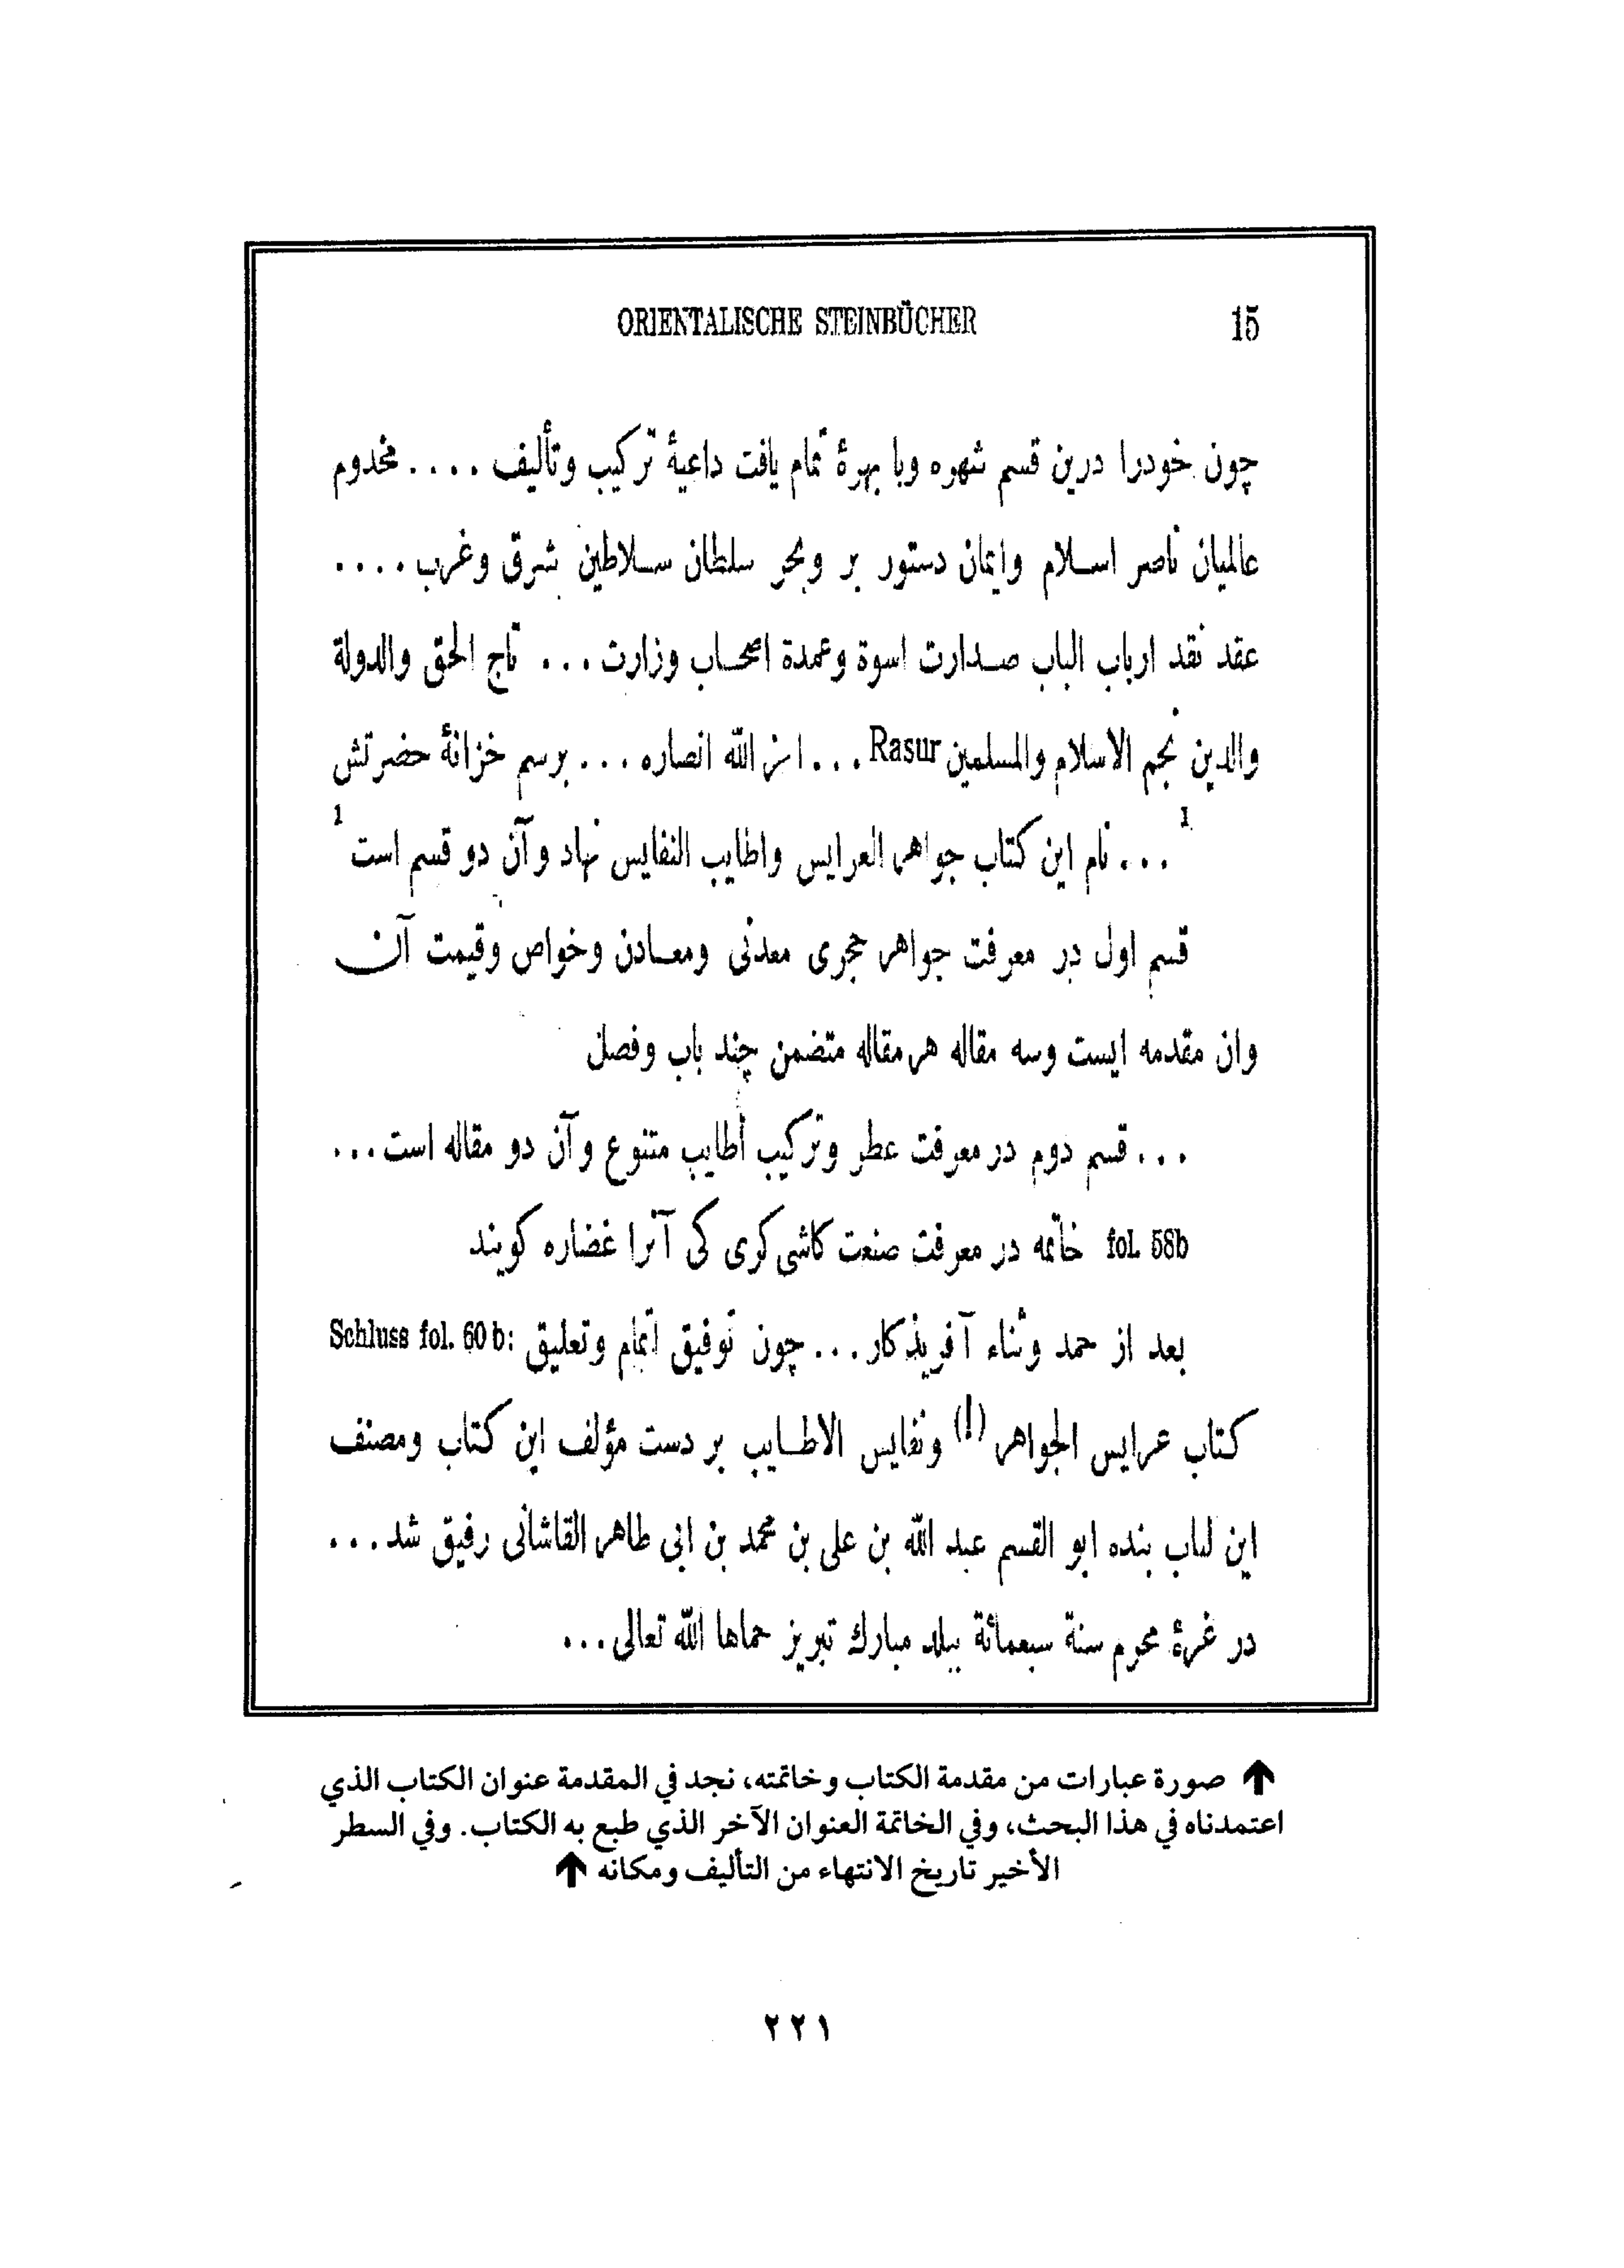 ORIENTALISCHE STEINBÜCHER 15
چون خودرا درین قسم شهره وبا بهرهٔ تمام یافت داعیهٔ ترکیب وتألیف .... مخدوم
عالمیان ناصر اسلام وایمان دستور بر وبحر سلطان سلاطین شرق وغرب ....
عقد نقد ارباب الباب صدارت اسوة وعمدة اصحاب وزارت ... تاج الحق والدولة
والدین نجم الاسلام والمسلمین Rasur ... الله انصاره ... برسم خزانهٔ حضرتش
1 ... نام این کتاب جواهر العرایس واطایب النفایس نهاد وآن دو قسم است 1
قسم اول در معرفت جواهر حجری معدنی ومعادن وخواص وقیمت آن
وان مقدمه ایست وسه مقاله هر مقاله متضمن چند باب وفصل
... قسم دوم در معرفت عطر وترکیب أطایب متنوع وآن دو مقاله است ...
fol. 58b خاتمه در معرفت صنعت کاشی کری کی آنرا غضاره کویند
Schluss fol. 60 b: بعد از حمد وثناء آفریذکار ... چون توفیق اتمام وتعلیق
کتاب عرایس الجواهر (!) ونفایس الاطایب بر دست مؤلف این کتاب ومصنف
این لباب بنده ابو القسم عبد الله بن علی بن محمد بن ابی طاهر القاشانی رفیق شد ...
در غرهٔ محرم سنة سبعمائة ببلد مبارك تبریز حماها الله تعالی ...
↑ صورة عبارات من مقدمة الكتاب وخاتمته، نجد في المقدمة عنوان الكتاب الذي
اعتمدناه في هذا البحث، وفي الخاتمة العنوان الآخر الذي طبع به الكتاب. وفي السطر
الأخير تاريخ الانتهاء من التأليف ومكانه ↑
٢٢١